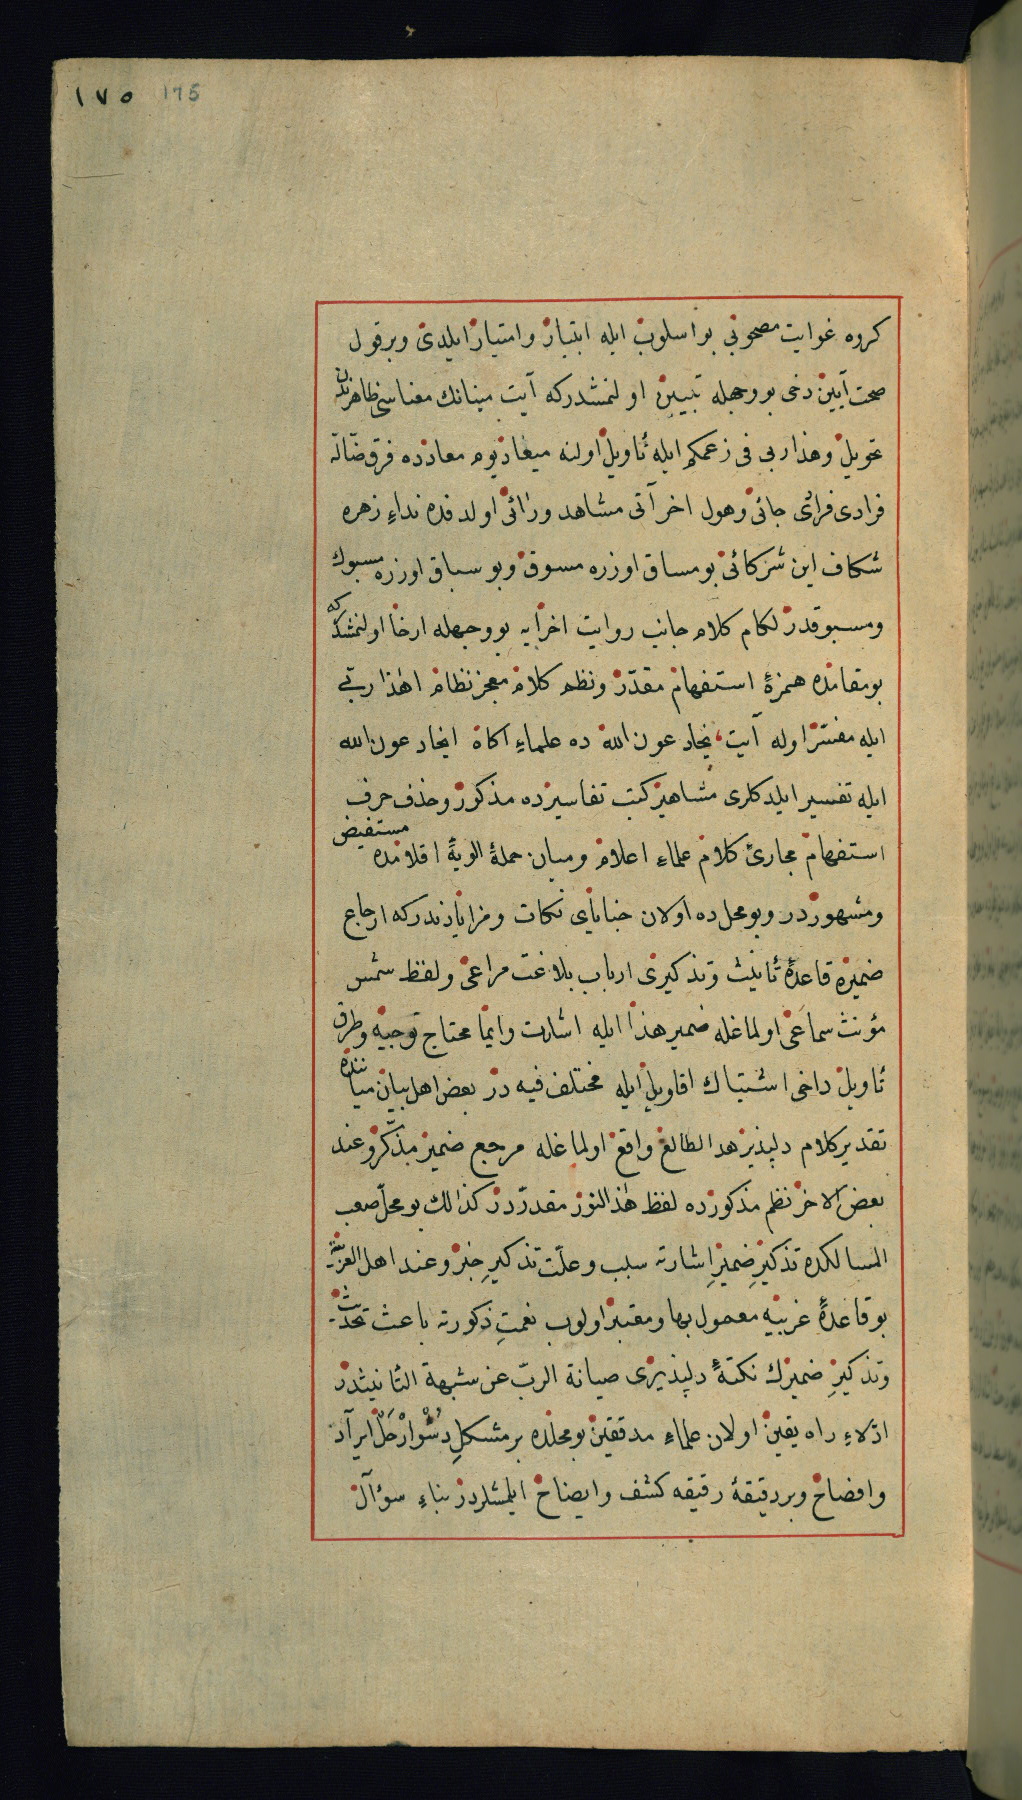 ١٧٥ 175
كروه غوايت مصحوبى بو اسلوب ايله ابتيار وامتياز ايلدى وبر قول
صحت آيين دخى بو وجهله تبيين اولنمشدركه آيت مينانك معناسى ظاهرندن
تحويل وهذا ربى فى زعمكم ايله تأويل اولنه ميعاد يوم معادده فرق ضالّه
فرادى فرادى جائى وهول اخر آتى مشاهد ورائى اولدقده نداء زهره
شكاف اين شركائى بو مساق اوزره مسوق وبو سباق اوزره مسبوك
ومسبوقدر لكام كلام جانب روايت اخرايه بو وجهله ارخا اولنمشدركه
بو مقامده همزۀ استفهام مقدّر ونظم كلام معجز نظام اهذا ربّى
ايله مفسّر اوله آيت يخادعون الله ده علماء اكاه ايخادعون الله
ايله تفسير ايلدكلرى مشاهير كتب تفاسيرده مذكور وحذف حرف
استفهام مجارئ كلام علماء اعلام وميان حملۀ الويۀ اقلامده مستفيض
ومشهوردر وبو محل ده اولان خباياى نكات ومزاياد‌ندركه ارجاع
ضميره قاعدۀ تأنيث وتذكيرى ارباب بلاغت مراعى ولفظ شمس
مؤنث سماعى اولماغله ضمير هذا ايله اشارت وايما محتاج توجيه وطرق
تأويل داخى اشتباك اقاويل ايله مختلف فيه در بعض اهل بيان مياننده
تقدير كلام دلپذير هذا الطالع واقع اولماغله مرجع ضمير مذكّر وعند
بعض الاخر نظم مذكورده لفظ هذا النور مقدّردر كذالك بو محلّ صعب
المسالكده تذكيرِ ضميرِ اشارته سبب وعلّت تذكيرِ خبر وعند اهل العربيّه
بو قاعدۀ غريبه معمول بها ومعتبر اولوب نعمتِ ذكورته باعث تحدّث
وتذكيرِ ضميرك نكتۀ دلپذيرى صيانة الربّ عن شبهة التأنيثدر
ادلاءِ راه يقين اولان علماءِ مدققين بو محلده بر مشكلِ دُشْوارْحَلّ ايراد
وافضاح وبر دقيقۀ رقيقه كشف وايضاح ايلمشلردر بناءِ سؤال